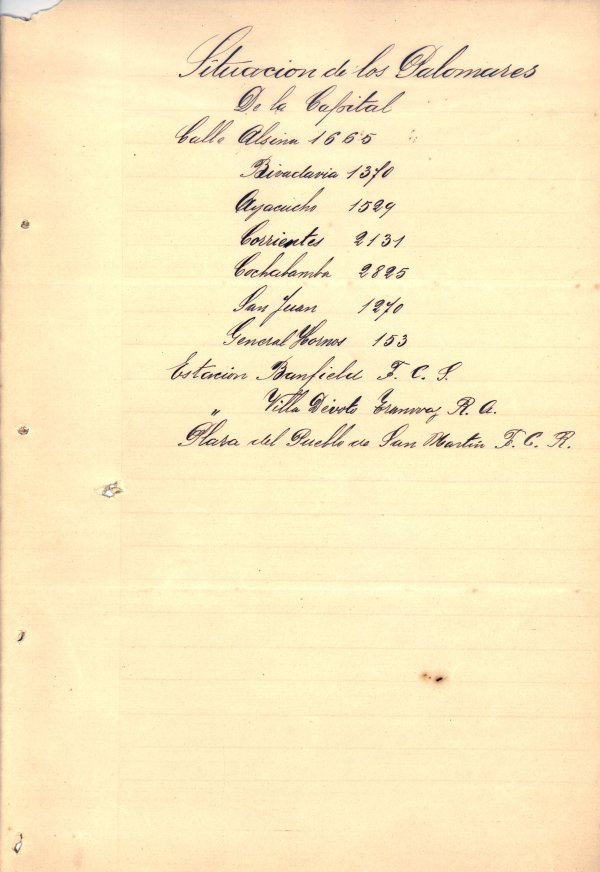 Situacion de los Palomares
De la Capital
Calle Alsina 1665
Rivadavia 1370
Ayacucho 1529
Corrientes 2131
Cochabamba 2825
San Juan 1270
General Hornos 153
Estacion Banfield F. C. S.
" Villa Devoto Tranway R. A.
Plaza del Pueblo de San Martin F. C. R.